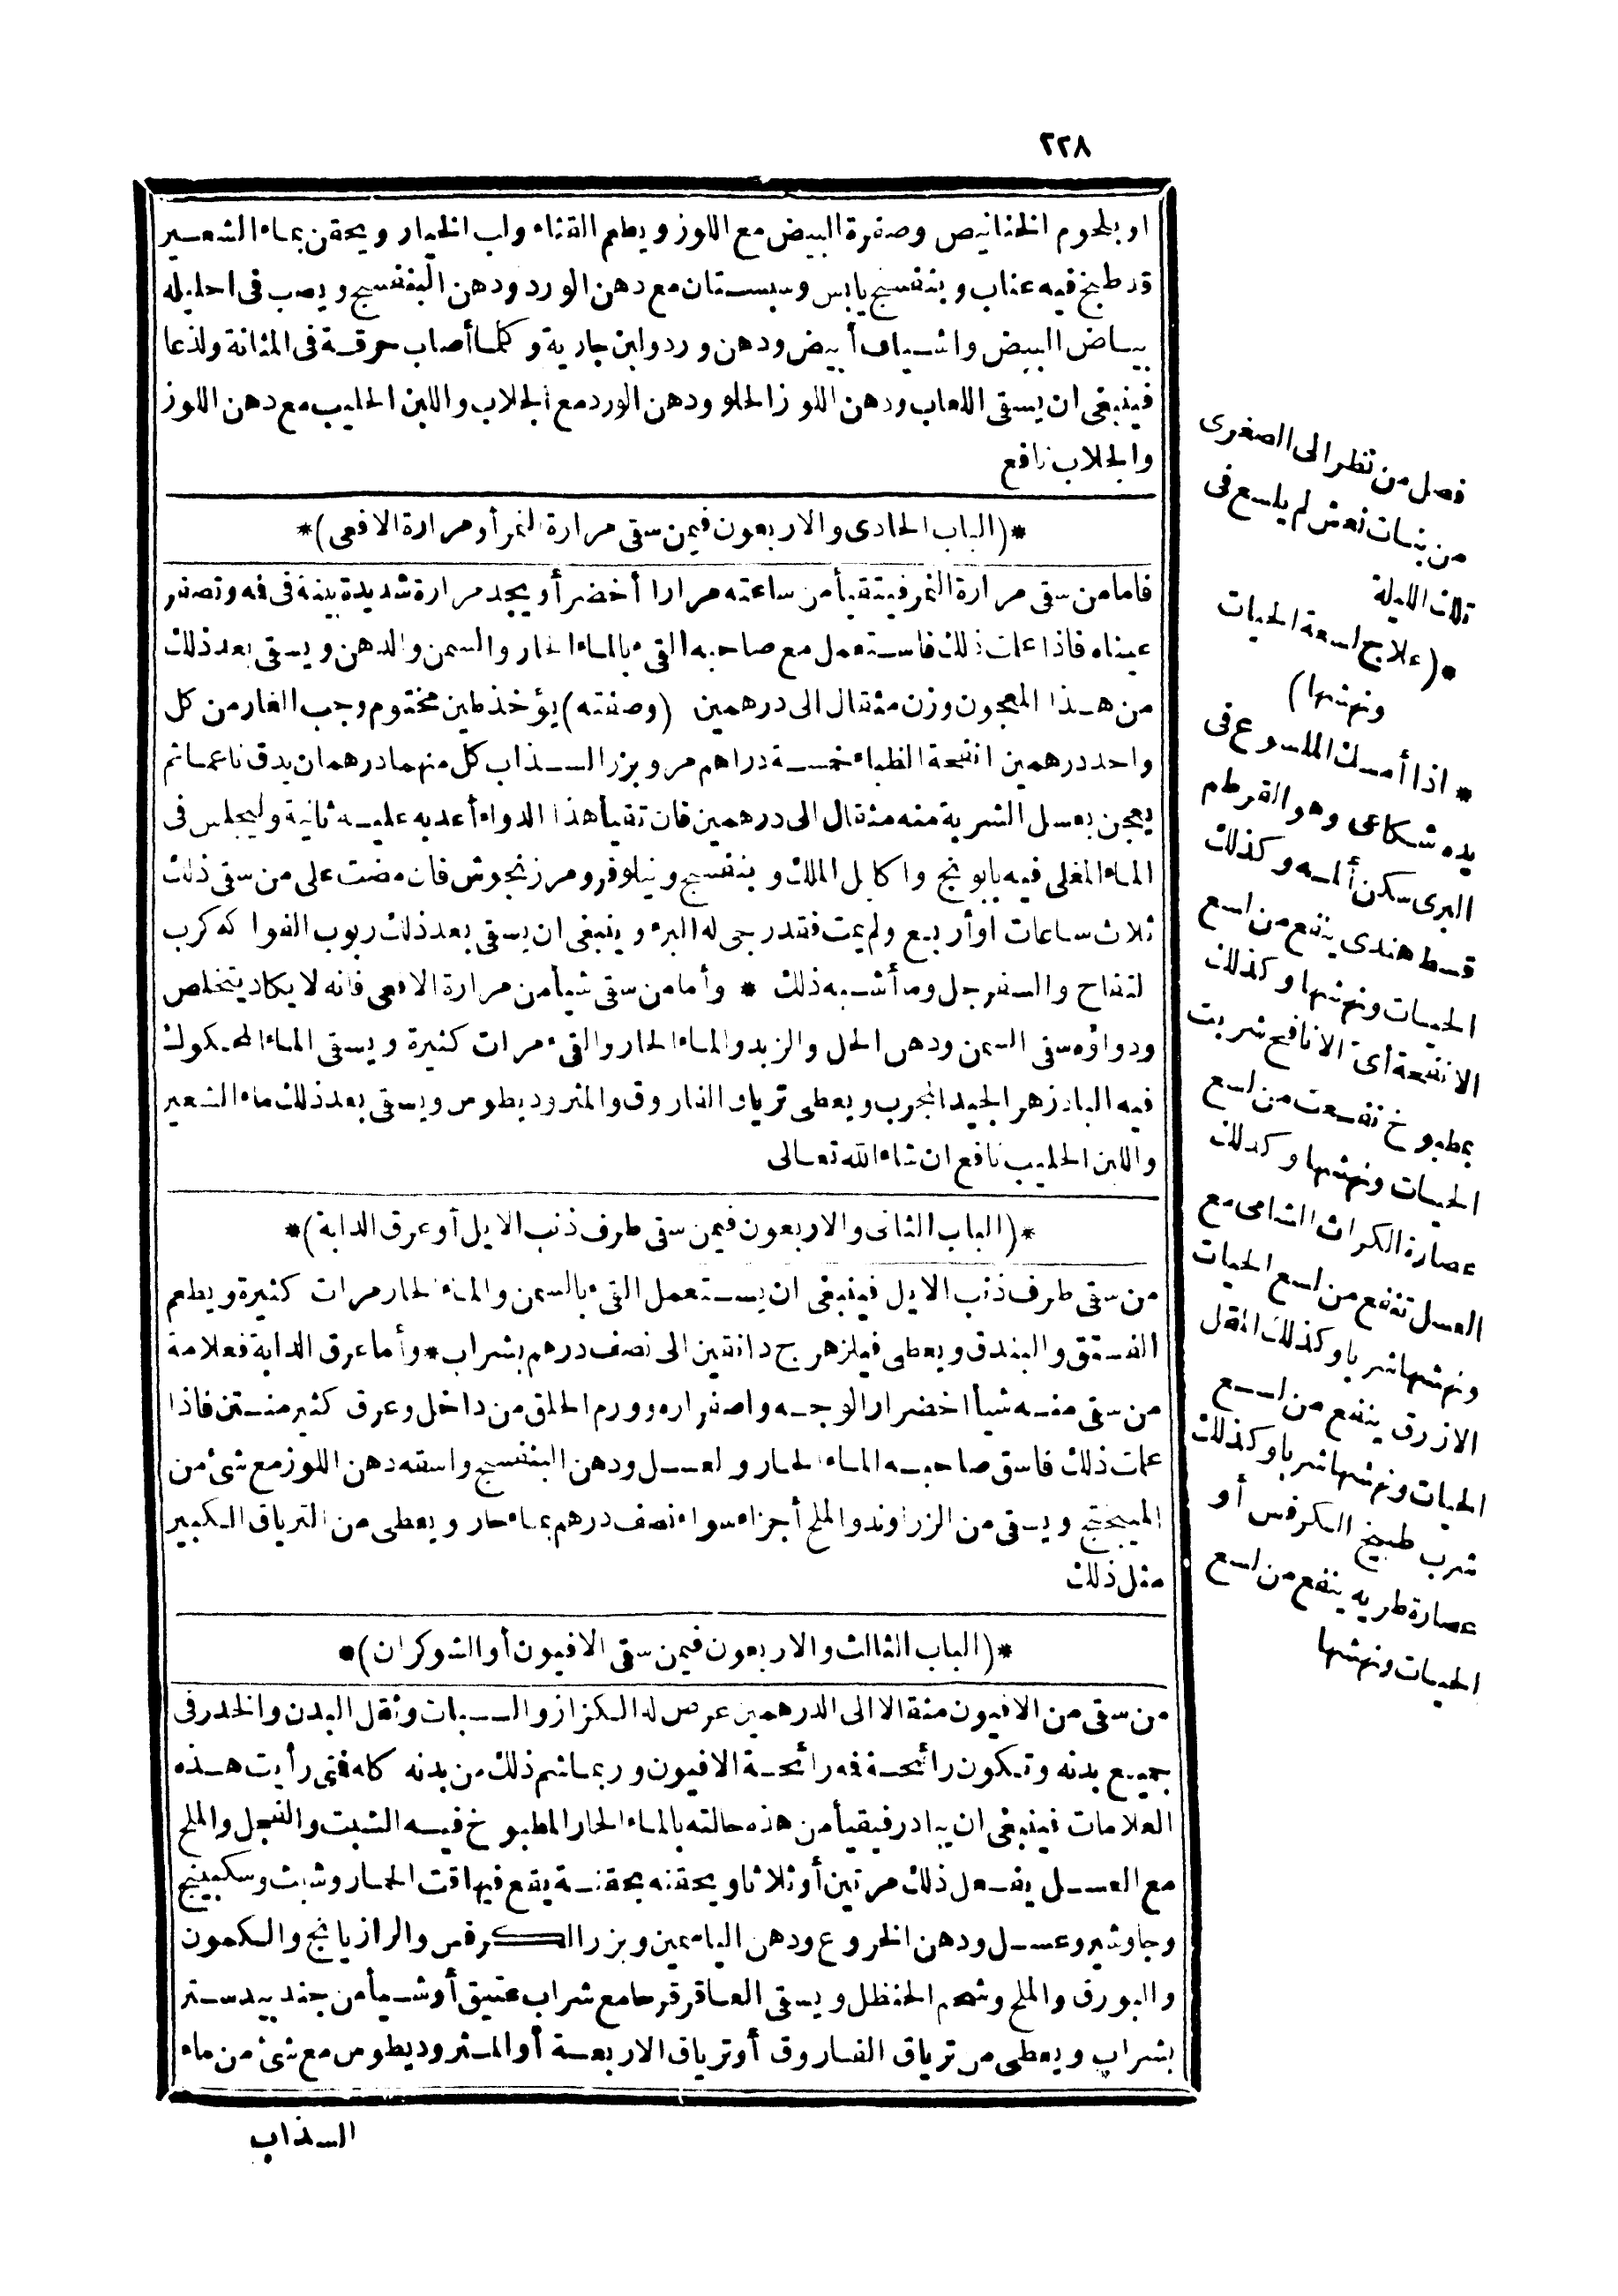 ٢٢٨
او بلحوم الخنانيص وصفرة البيض مع اللوز ويطعم القثاء ولب الخيار ويحقن بماء الشعير
قد طبخ فيه عناب وبنفسج يابس وسبستان مع دهن الورد ودهن البنفسج ويصب فى احليله
بياض البيض واشياف أبيض ودهن ورد ولبن جارية وكلما أصاب حرقة فى المثانة ولذعا
فينبغى ان يسقى اللعاب ودهن اللوز الحلو ودهن الورد مع الجلاب واللبن الحليب مع دهن اللوز
والجلاب نافع
*(الباب الحادى والاربعون فيمن سقى مرارة النمر أو مرارة الافعى)*
فاما من سقى مرارة النمر فيتقيأ من ساعته مرارا أخضر أو يجد مرارة شديدة بينة فى فه وتصفر
عيناه فاذا علمت ذلك فاستعمل مع صاحبه القىء بالماء الحار والسمن والدهن ويسقى بعد ذلك
من هذا المعجون وزن مثقال الى درهمين (وصفته) يؤخذ طين مختوم وحب الغار من كل
واحد درهمين انفحة الظباء خمسة دراهم مر وبزر السذاب كل منهما درهمان يدق ناعما ثم
يعجن بعسل الشربة منه مثقال الى درهمين فان تقيأ هذا الدواء أعد به عليه ثانية وليجلس فى
الماء المغلى فيه بابونج واكليل الملك وبنفسج ونيلوفر ومرزنجوش فان مضت على من سقى ذلك
ثلاث ساعات او أربع ولم يمت فقد رجى له البرء وينبغى ان يسقى بعد ذلك ربوب الفواكه كرب
لتفاح والسفرجل وما أشبه ذلك * وأما من سقى شيأ من مرارة الافعى فانه لا يكاد يتخلص
ودواؤه سقى السمن ودهن الحل والزبد والماء الحار والقىء مرات كثيرة ويسقى الماء المحكوك
فيه البادزهر الجيد المجرب ويعطى ترياق الفاروق والمثروديطوس ويسقى بعد ذلك ماء الشعير
واللبن الحليب نافع ان شاء الله تعالى
*(الباب الثانى والاربعون فيمن سقى طرف ذنب الايل أو عرق الدابة)*
من سقى طرف ذنب الايل فينبغى ان يستعمل القىء بالسمن والماء الحار مرات كثيرة ويطعم
الفستق والبندق ويعطى فيلزهرج دانقين الى نصف درهم بشراب * وأما عرق الدابة فعلامة
من سقى منه شيأ اخضرار الوجه واصفراره وورم الحلق من داخل وعرق كثير منتن فاذا
علمت ذلك فاسق صاحبه الماء الحار والعسل ودهن البنفسج واسقه دهن اللوز مع شئ من
الميبختج ويسقى من الزراوند والملح أجزاء سواء نصف درهم بماء حار ويعطى من الترياق الكبير
مثل ذلك
*(الباب الثالث والاربعون فيمن سقى الافيون أو الشوكران)*
من سقى من الافيون مثقالا الى الدرهمين عرض له الكزاز والسبات وثقل البدن والخدر فى
جميع بدنه وتكون رائحة فه رائحة الافيون وربما شم ذلك من بدنه كله فتى رأيت هذه
العلامات فينبغى ان يبادر فيقيأ من هذه حالته بالماء الحار المطبوخ فيه الشبت والفجل والملح
مع العسل يفعل ذلك مرتين أو ثلاثا ويحقنه بحقنة يقع فيها قثاء الحمار وشبث وسكبينج
وجاوشير وعسل ودهن الخروع ودهن الياسمين وبزر الكرفس والرازيانج والكمون
والبورق والملح وشحم الحنظل ويسقى العاقرقرحا مع شراب عتيق أو شيأ من جندبيدستر
بشراب ويعطى من ترياق الفاروق أو ترياق الاربعة أو المثروديطوس مع شئ من ماء
السذاب
فصل من نظر الى الصغرى
من بنات نعش لم يلسع فى
تلك الليلة
*(علاج لسعة الحيات
ونهشها)
* اذا أمسك الملسوع فى
يده شكاعى وهو القرطم
البرى سكن ألمه وكذلك
قسط هندى ينفع من لسع
الحيات ونهشها وكذلك
الانفحة أى الانافح شربت
بمطبوخ نفعت من لسع
الحيات ونهشها وكذلك
عصارة الكراث الشامى مع
العسل تنفع من لسع الحيات
ونهشها شربا وكذلك المقل
الازرق ينفع من لسع
الحيات ونهشها شربا وكذلك
شرب طبيخ الكرفس أو
عصارة طريه ينفع من لسع
الحيات ونهشها